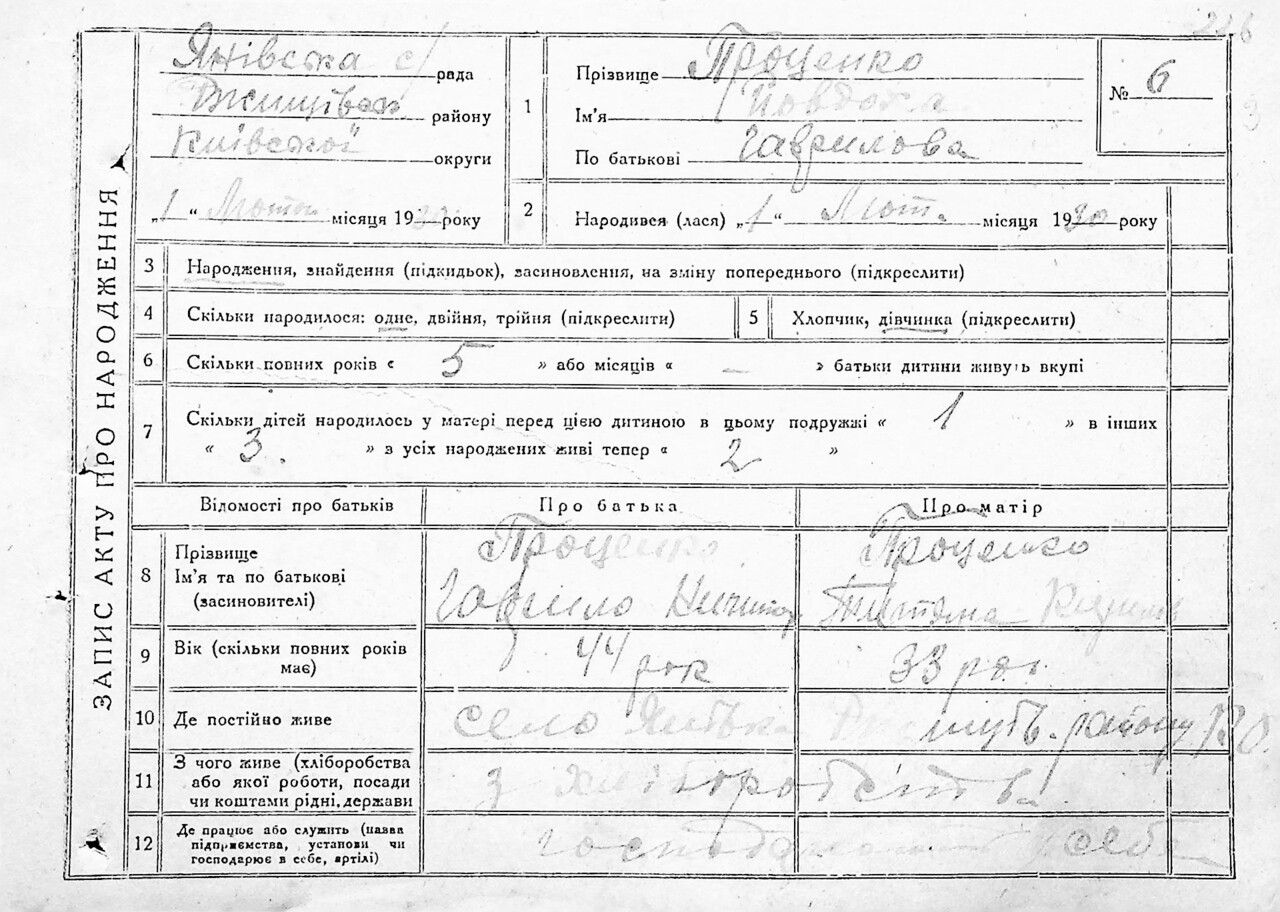 226
ЗАПИС АКТУ ПРО НАРОДЖЕННЯ
Янівська с/рада
району
Київської округи
„1“ Лютого місяця 1930 року
1 Прізвище Проценко
Ім'я Йовдоха
По батькові Гаврилова
№ 6
2 Народився (лася) „1“ Лют. місяця 1930 року
3 Народження, знайдення (підкидьок), засиновлення, на зміну попереднього (підкреслити)
4 Скільки народилося: одне, двійня, трійня (підкреслити)
5 Хлопчик, дівчинка (підкреслити)
6 Скільки повних років « 5 » або місяців « — » батьки дитини живуть вкупі
7 Скільки дітей народилось у матері перед цією дитиною в цьому подружжі « 1 » в інших
« 3. » з усіх народжених живі тепер « 2 »
Відомості про батьків Про батька Про матір
8 Прізвище Проценко Проценко
Ім'я та по батькові
(засиновителі) Гаврило
9 Вік (скільки повних років
має) 44 рок 33 рок.
10 Де постійно живе село району
11 З чого живе (хліборобства
або якої роботи, посади
чи коштами рідні, держави з хліборобства
12 Де працює або служить (назва
підприємства, установи чи
господарює в себе, артілі) себе